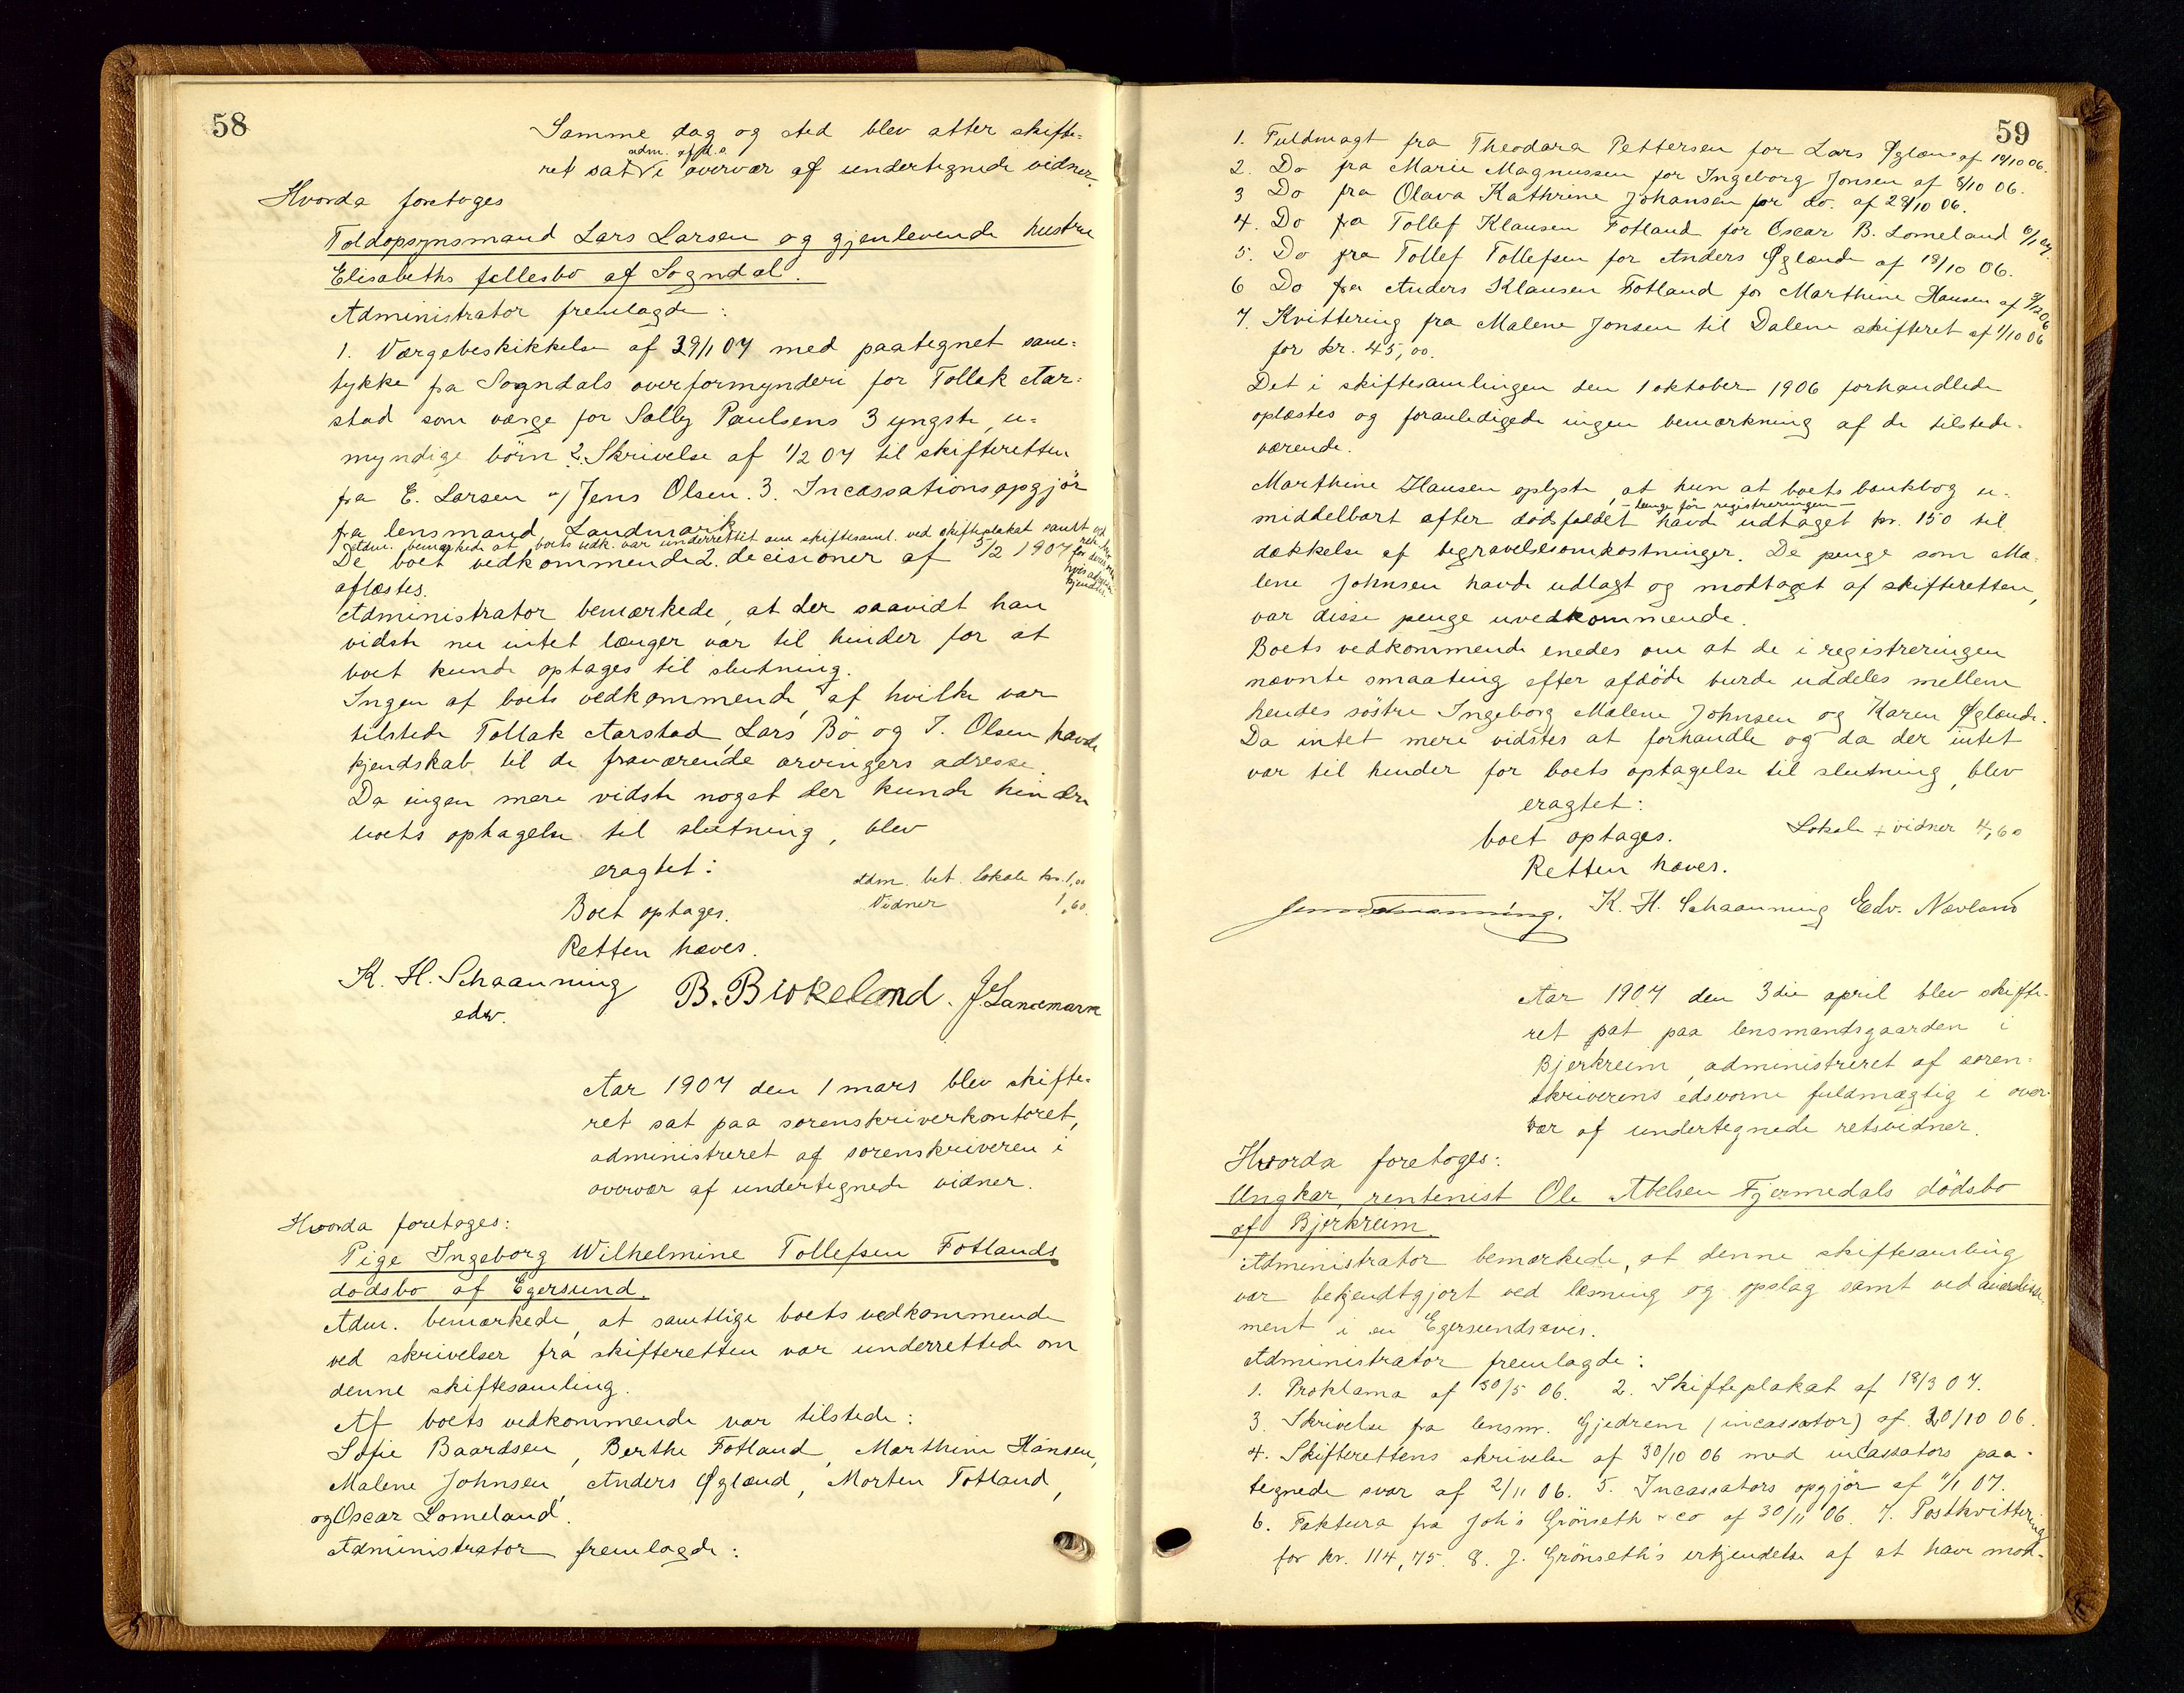 58
Samme dag og sted blev atter skifte-
adm. af d. o.
ret sat i overvær af undertegnede vidner.
Hvorda foretoges
Toldopsynsmand Lars Larsen og gjenlevende hustru
Elisabeths fellesbo af Sogndal.
Administrator fremlagde:
1. Værgebeskikkelse af 29/1 07 med paategnet sam-
tykke fra Sogndals overformynderi for Tollak Aar-
stad som værge for Sally Paulsens 3 yngste, u-
myndige börn 2. Skrivelse af 1/2 07 til skifteretten
fra E. Larsen v/ Jens Olsen. 3. Incassationsopgjör
fra lensmand Landmark
Adm. bemærkede at boets vedk. var underrettet om skiftesaml. ved skifteplakat samt
De boet vedkommende 2. decisioner af 5/2 1907
aflæstes.
Administrator bemærkede, at der saavidt han
vidste nu intet længer var til hinder for at
boet kunde optages til slutning.
Ingen af boets vedkommende, af hvilke var
tilstede Tollak Aarstad, Lars Bö og J. Olsen havde
kjendskab til de fraværende arvingers adresse
Da ingen mere vidste noget der kunde hindre
boets optagelse til slutning, blev
eragtet:
Adm. bet. lokale kr. 1,00
Boet optages.
Vidner 1,60.
Retten hæves.
K. H. Schaanning B. Birkeland. J. Landmark
edsv.
Aar 1907 den 1 mars blev skifte-
ret sat paa sorenskriverkontoret,
administreret af sorenskriveren i
overvær af undertegnede vidner.
Hvorda foretoges:
Pige Ingeborg Wilhelmine Tollefsen Fotlands
dödsbo af Egersund.
Adm. bemærkede, at samtlige boets vedkommende
ved skrivelser fra skifteretten var underrettede om
denne skiftesamling.
Af boets vedkommende var tilstede:
Sofie Baardsen, Berthe Fotland, Marthine Hansen,
Malene Johnsen, Anders Øglænd, Morten Fotland,
og Oscar Lomeland.
Administrator fremlagde:
59
1. Fuldmagt fra Theodora Pettersen for Lars Øglænd af 19/10 06.
2. Do fra Marie Magnussen for Ingeborg Jonsen af 8/10 06.
3 Do fra Olava Kathrine Johansen for do. af 29/10 06.
4. Do fra Tollef Klausen Fotland for Oscar B. Lomeland
5. Do fra Tollef Tollefsen for Anders Øglænd af 18/10 06.
6 Do fra Anders Klausen Fotland for Marthine Hansen af
7. Kvittering fra Malene Jonsen til Dalene skifteret af 1/10 06
for kr. 45,00.
Det i skiftesamlingen den 1 oktober 1906 forhandlede
oplæstes og foranledigede ingen bemærkning af de tilstede-
værende.
Marthine Hansen oplyste, at hun at boets bankbog u-
– længe för registreringen –
middelbart efter dödsfaldet havde udtaget kr. 150 til
dækkelse af begravelsesomkostninger. De penge som Ma-
lene Johnsen havde udlagt og modtaget af skifteretten,
var disse penge uvedkommende.
Boets vedkommende enedes om at de i registreringen
nævnte smaating efter afdöde burde uddeles mellem
hendes söstre Ingeborg Malene Johnsen og Karen Øglænd.
Da intet mere vidstes at forhandle og da der intet
var til hinder for boets optagelse til slutning, blev
eragtet:
boet optages.
Lokale + vidner 4,60
Retten hæves.
K. H. Schaanning Edv. Nævland
Aar 1907 den 3die april blev skifte-
ret sat paa lensmandsgaarden i
Bjerkreim, administreret af soren-
skriverens edsvorne fuldmægtig i over-
vær af undertegnede retsvidner.
Hvorda foretoges:
Ungkar, rentenist Ole Abelsen Fjermedals dödsbo
af Bjerkreim.
Administrator bemærkede, at denne skiftesamling
var bekjendtgjort ved læsning og opslag samt ved avertisse-
ment i en Egersundsavis.
Administrator fremlagde:
1. Proklama af 30/5 06. 2. Skifteplakat af 18/3 07.
3. Skrivelse fra lensm. Gjedrem (incassator) af 20/10 06.
4. Skifterettens skrivelse af 30/10 06 med incassators paa-
tegnede svar af 2/11 06. 5. Incassators opgjör af 11/1 07.
6. Faktura fra Joh's Grönseth & co af 30/11 06. 7. Postkvittering
for kr. 114,75. 8. J. Grönseth's erkjendelse af at have mod-